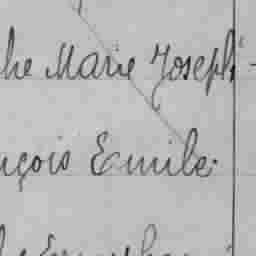 he Marie Joseph -
nçois Emile